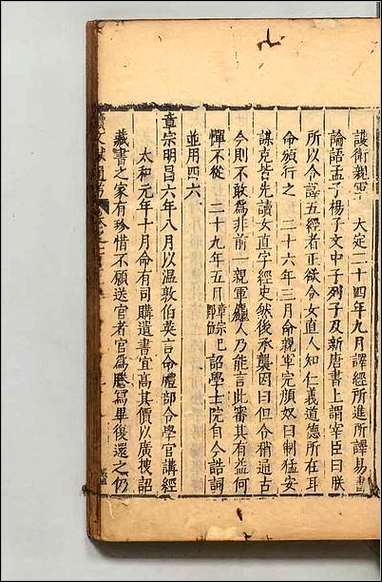 護衛親軍　大定二十四年九月譯經所進所譯易書
論語孟子楊子文中子列子及新唐書上謂宰臣曰朕
所以令譯五經者正欲令女直人知仁義道德所在耳
命頒行之　二十六年三月命親軍完顏奴曰制猛安
謀克皆先讀女直字經史然後承襲因曰但令稍通古
今則不敢為非前一親軍麤人乃能言此審其有益何
憚不從　二十九年五月章宗已即位詔學士院自今誥詞
並用四六
章宗明昌六年八月以溫敦伯英言命禮部令學官講經
太和元年十月命有司購遺書宜高其價以廣搜
藏書之家有珍惜不願送官者官為謄寫畢復還之仍